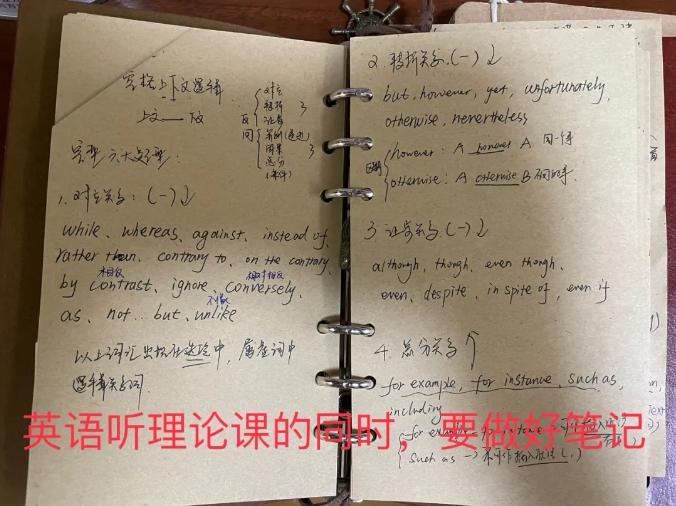 完型上下文逻辑
上文 下文
反 同
对立
转折
让步
并列(递进)
因果
总分
(条件)
完型六大题型:
1. 对立关系: (一)↓
while、whereas、against、instead of、
rather than、contrary to、on the contrary、
by contrast、ignore、conversely、
相反
as、not... but、unlike
以上词汇出现在选项中,属查词中
逻辑关系词.
2. 转折关系.(一)↓
but、however, yet, unfortunately,
otherwise、nevertheless
however: A however A 同一件
otherwise: A otherwise B 不同的事.
3 让步关系.(一)↓
although, though、even though、
even、despite、in spite of、even if
4. 总分关系↑
for example, for instance, such as,
including
for example
such as → 不可作插入语
英语听理论课的同时,要做好笔记